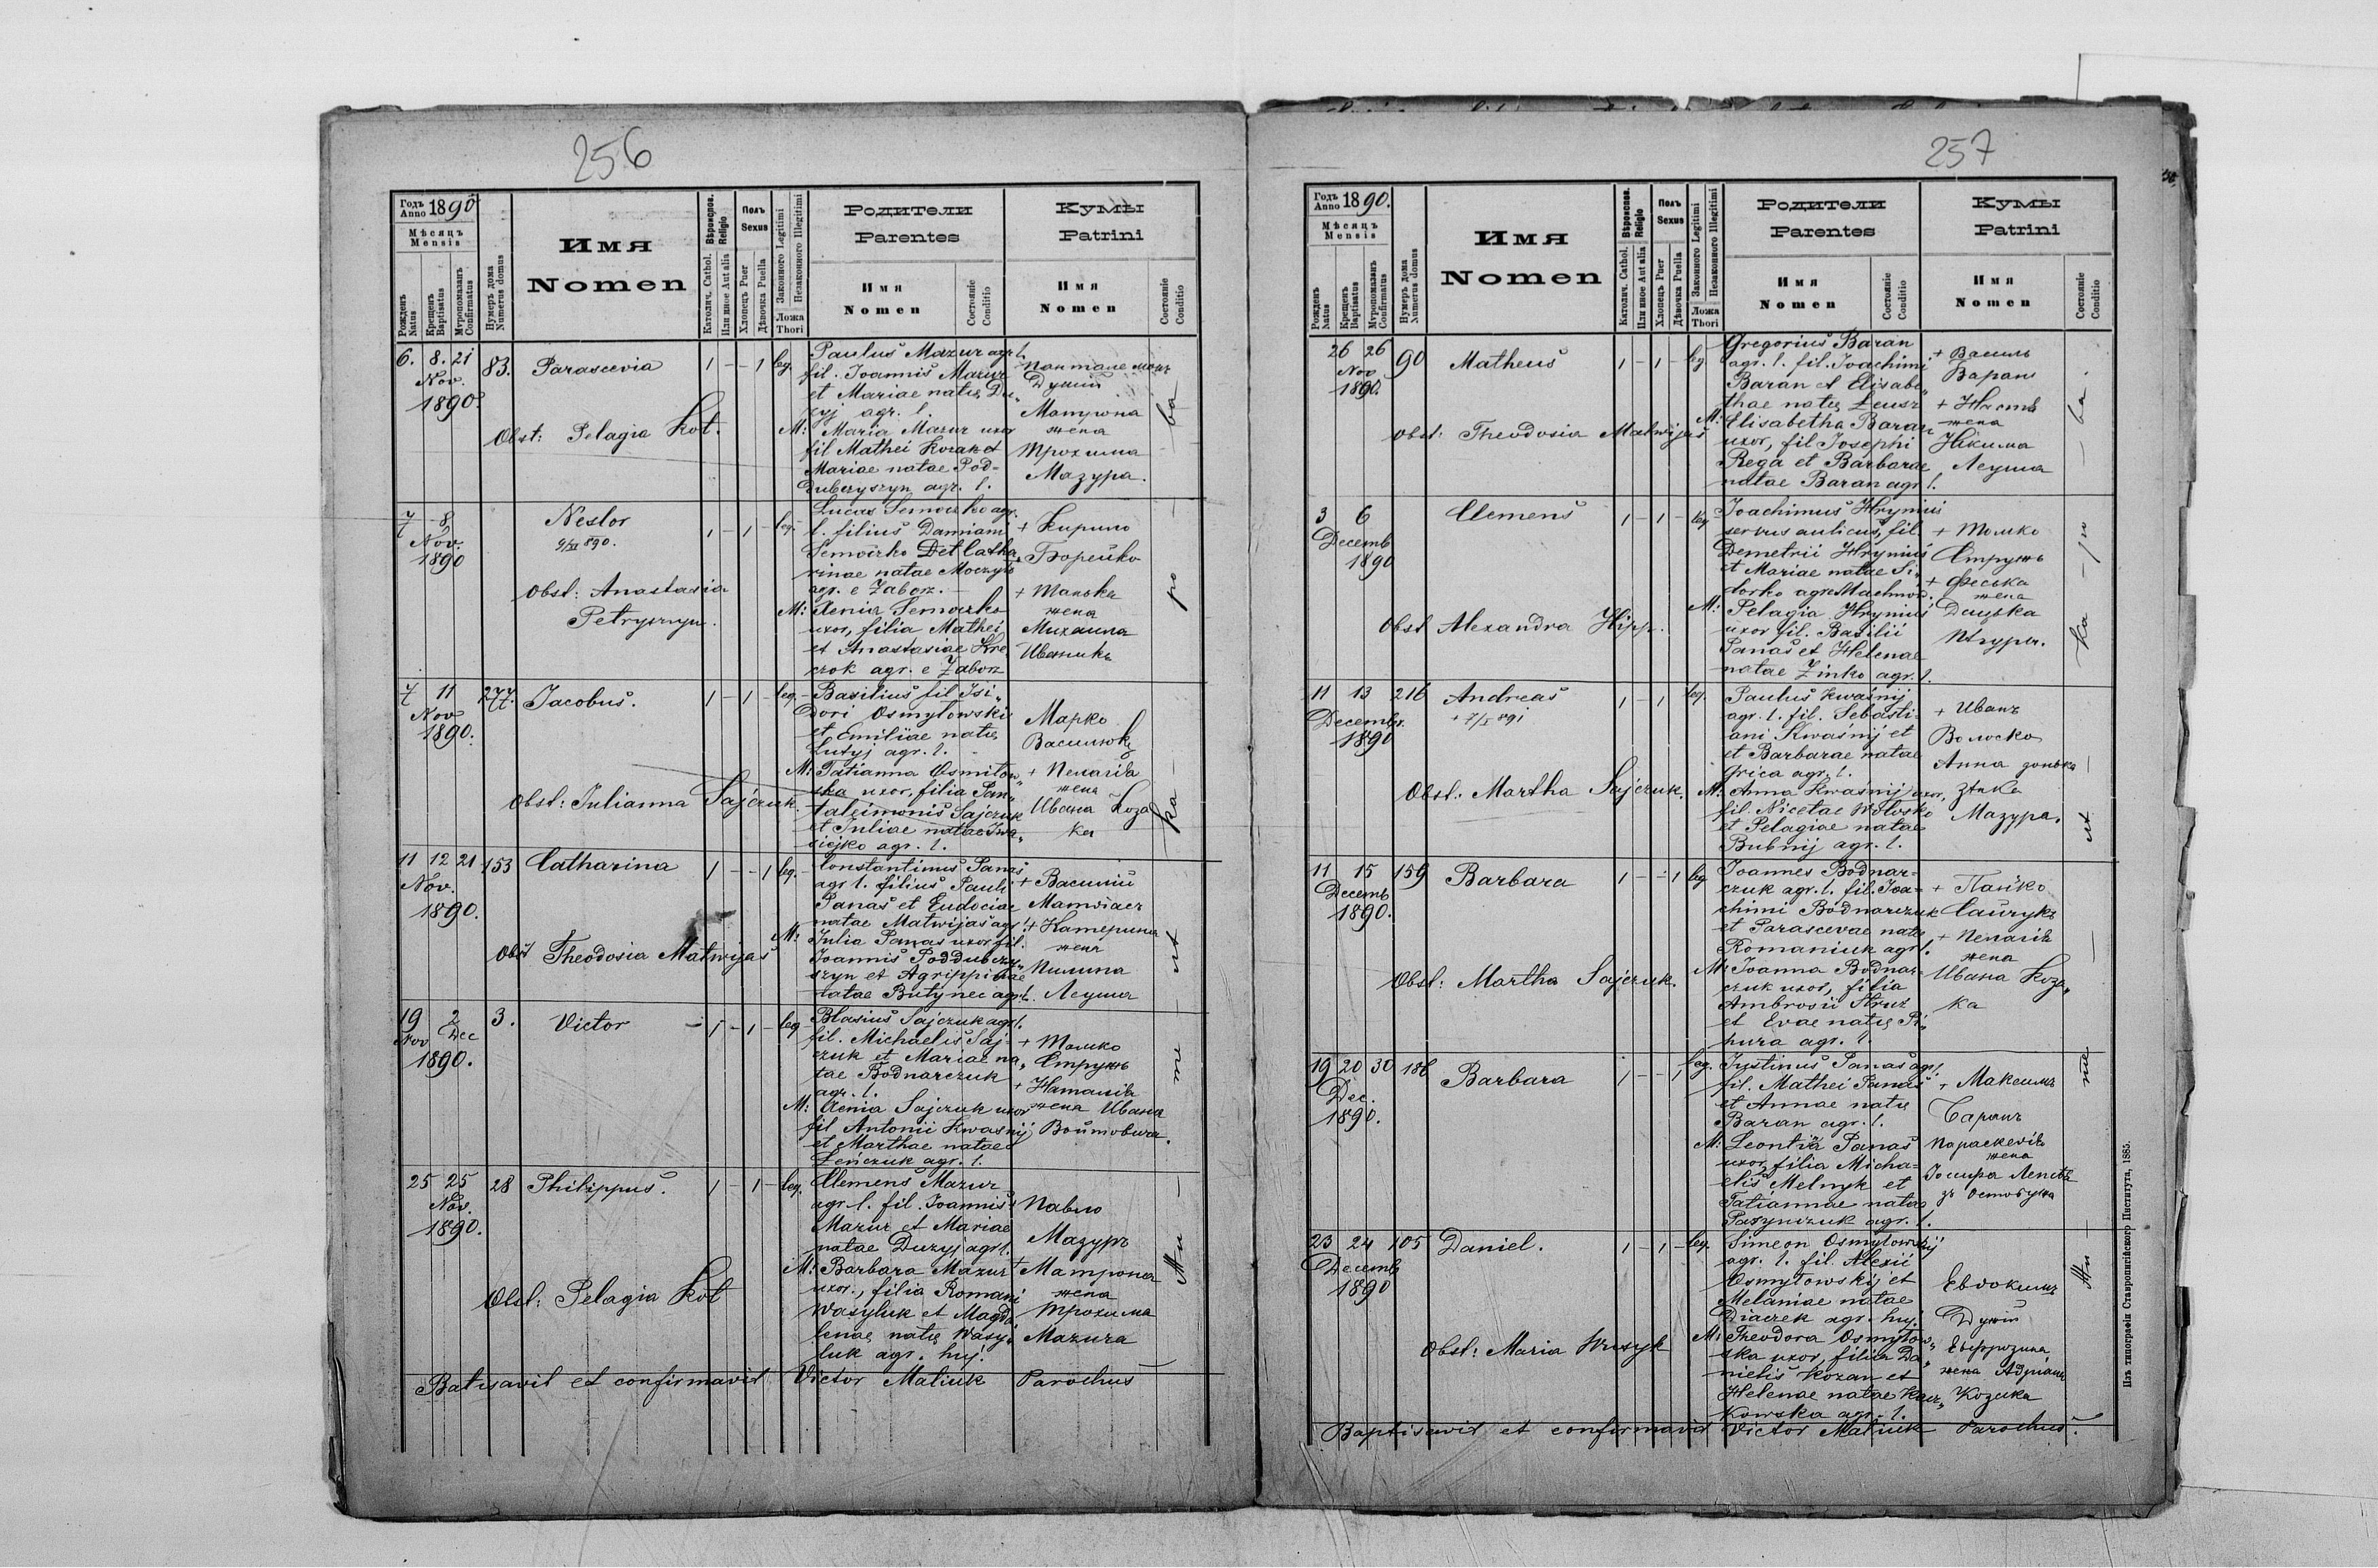 256
Годъ Anno 1890
Мѣсяцъ
Mensis
Рожденъ Natus
Крещенъ Baptisatus
Мѵропомазанъ Confirmatus
Нумеръ дома Numerus domus
Имя
Nomen
Вѣроисповѣд. Religio
Католич. Cathol.
Или иное Aut alia
Полъ
Sexus
Хлопецъ Puer
Дѣвочка Puella
Законного Legitimi
Незаконного Illegitimi
Ложа
Thori
Родители
Parentes
Имя
Nomen
Состояніе
Conditio
Кумы
Patrini
Имя
Nomen
Состояніе
Conditio
6. 8. 21
Nov.
1890.
83.
Parascevia
1 - - 1 leg.
Obst: Pelagia Kot.
Paulus Mazur agr. l.
fil. Joannis Mazur
et Mariae natę Du„
zyj agr. l.
M: Maria Mazur uxor
fil Mathei Kozak et
Mariae natae Pod-
dubczyszyn agr. l.
Дужій
Матрона
жена
Трохима
Мазура.
7 8
Nov.
1890
Nestor
Obst: Anastasia
Petryszyn.
1 - 1 - leg.
l. filius Damiani
rinae natae
agr. e Zaborz.
M: uxor, filia Mathei
et Anastasiae
agr. e Zaborz
+ Кирило
Борейко
+ Танька
жена
Михаила
7 11
Nov
1890.
277.
Jacobus.
1 - 1 - leg.
Obst: Julianna Sajczuk.
Basilius fil Isi„
dori Osmyłowski
et Emiliae natę
Łuzyj agr. l.
M: Tatianna Osmiłow„
ska uxor, filia Pan„
taleimonis Sajczuk
et Juliae natae Iwa„
siejko agr. l.
Марко
+ Пелагія
жена
Ивана Коза
ка
11 12 21
Nov.
1890.
153
Catharina
1 - - 1 leg.
Obst Theodosia Matwijas
Constantinus Panas
agr l. filius Pauli
Panas et Eudociae
natae Matwijas agr l.
M: Julia Panas uxor fil.
Joannis Poddubczy„
szyn et Agrippinae
natae Butynec agr l.
+ Василій
Матвіасъ
+ Катерина
жена
Пилипа
Леуша
19 2
Nov Dec
1890.
3.
Victor
1 - 1 - leg
Blasius Sajczuk agr l.
fil. Michaelis Saj-
czuk et Mariae na„
tae Bodnarczuk
agr. l.
M: Xenia Sajczuk uxor
fil Antonii Kwasnij
et Marthae natae
Leńczuk agr. l.
+ Томко
Струкъ
+ Наталія
жена Ивана
Войтовича.
25 25
Nov.
1890.
28
Philippus.
1 - 1 - leg.
Obst: Pelagia Kot
Clemens Mazur
agr l. fil. Joannis
Mazur et Mariae
natae Duzyj agr l.
M: Barbara Mazur
uxor, filia Romani
Wasyluk et Magda„
lenae natę Wasy„
luk agr. huj.
Павло
Мазуръ
+ Матрона
жена
Трохима
Mazura
Batisavit et confirmavit Victor Maliuk Parochus
257
Годъ Anno 1890.
Мѣсяцъ
Mensis
Рожденъ Natus
Крещенъ Baptisatus
Мѵропомазанъ Confirmatus
Нумеръ дома Numerus domus
Имя
Nomen
Вѣроисповѣд. Religio
Католич. Cathol.
Или иное Aut alia
Полъ
Sexus
Хлопецъ Puer
Дѣвочка Puella
Законного Legitimi
Незаконного Illegitimi
Ложа
Thori
Родители
Parentes
Имя
Nomen
Состояніе
Conditio
Кумы
Patrini
Имя
Nomen
Состояніе
Conditio
26 26
Nov
1890.
90
Matheus
1 - 1 - leg
Obst: Theodosia Matwijas
Gregorius Baran
agr. l. fil. Joachimi
Baran et Elisabe„
thae natę Leusz
M: Elisabetha Baran
uxor, fil. Josephi
Rega et Barbarae
natae Baran agr l.
+ Василь
Баран
жена
Якима
Леуша
3 6
Decemb
1890
Clemens
1 - 1 - leg
Obst Alexandra Hipp.
Joachimus Hryniuś
servus aulicus, fil.
Demetrii Hryniuś
et Mariae natae Si„
dorko agr.
M: Pelagia Hryniuś
uxor fil. Basilii
Panas et Helenae
natae Zinko agr. l.
+ Томко
Струкъ
+ Феська
жена
11 13
Decembr.
1890
216
Andreas
1 - 1 leg.
Obst: Martha Sajczuk.
Paulus Kwaśnij
agr. l. fil. Sebasti-
ani Kwaśnij et
et Barbarae natae
Grica agr. l.
M: Anna Kwaśnij uxor,
fil. Nicetae Wołosko
et Pelagiae natae
Bubnij agr. l.
+ Иванъ
Волоско
Анна донька
Мазура.
11 15
Decemb
1890.
159
Barbara
1 - - 1 leg
Obst: Martha Sajczuk.
Joannes Bodnar-
czuk agr. l. fil. Joa-
chimi Bodnarczuk
et Parascevae natę
Romaniuk agr l.
M: Joanna Bodnar-
czuk uxor, filia
Ambrosii Struk
et Evae natę Pi„
hura agr. l.
+ Панько
Сайчукъ
+ Пелагія
жена
Ивана Коза„
ка
19 20 30
Dec.
1890.
186
Barbara
1 - - 1 leg.
Justinus Panas agr l.
fil. Mathei Panas
et Annae natę
Baran agr. l.
M: Leontia Panas
uxor, filia Micha-
elis Melnyk et
Tatiannae natae
agr. l.
+ Максимъ
Баранъ
Параскевія
жена
23 24
Decemb
1890
105
Daniel.
1 - 1 - leg.
Simeon Osmyłowskij
agr. l. fil. Alexii
Osmyłowskij et
Melaniae natae
Diaczek agr. huj.
M: Theodora Osmyłow„
ska uxor, filia Da„
nielis Kozan et
Helenae natae
agr. l.
Евдокимъ
Дужій
Евфрозина
жена Адріана
Козака
Baptisavit et confirmavit Victor Maliuk Parochus.
Изъ типографіи Ставропигійского Института, 1885.